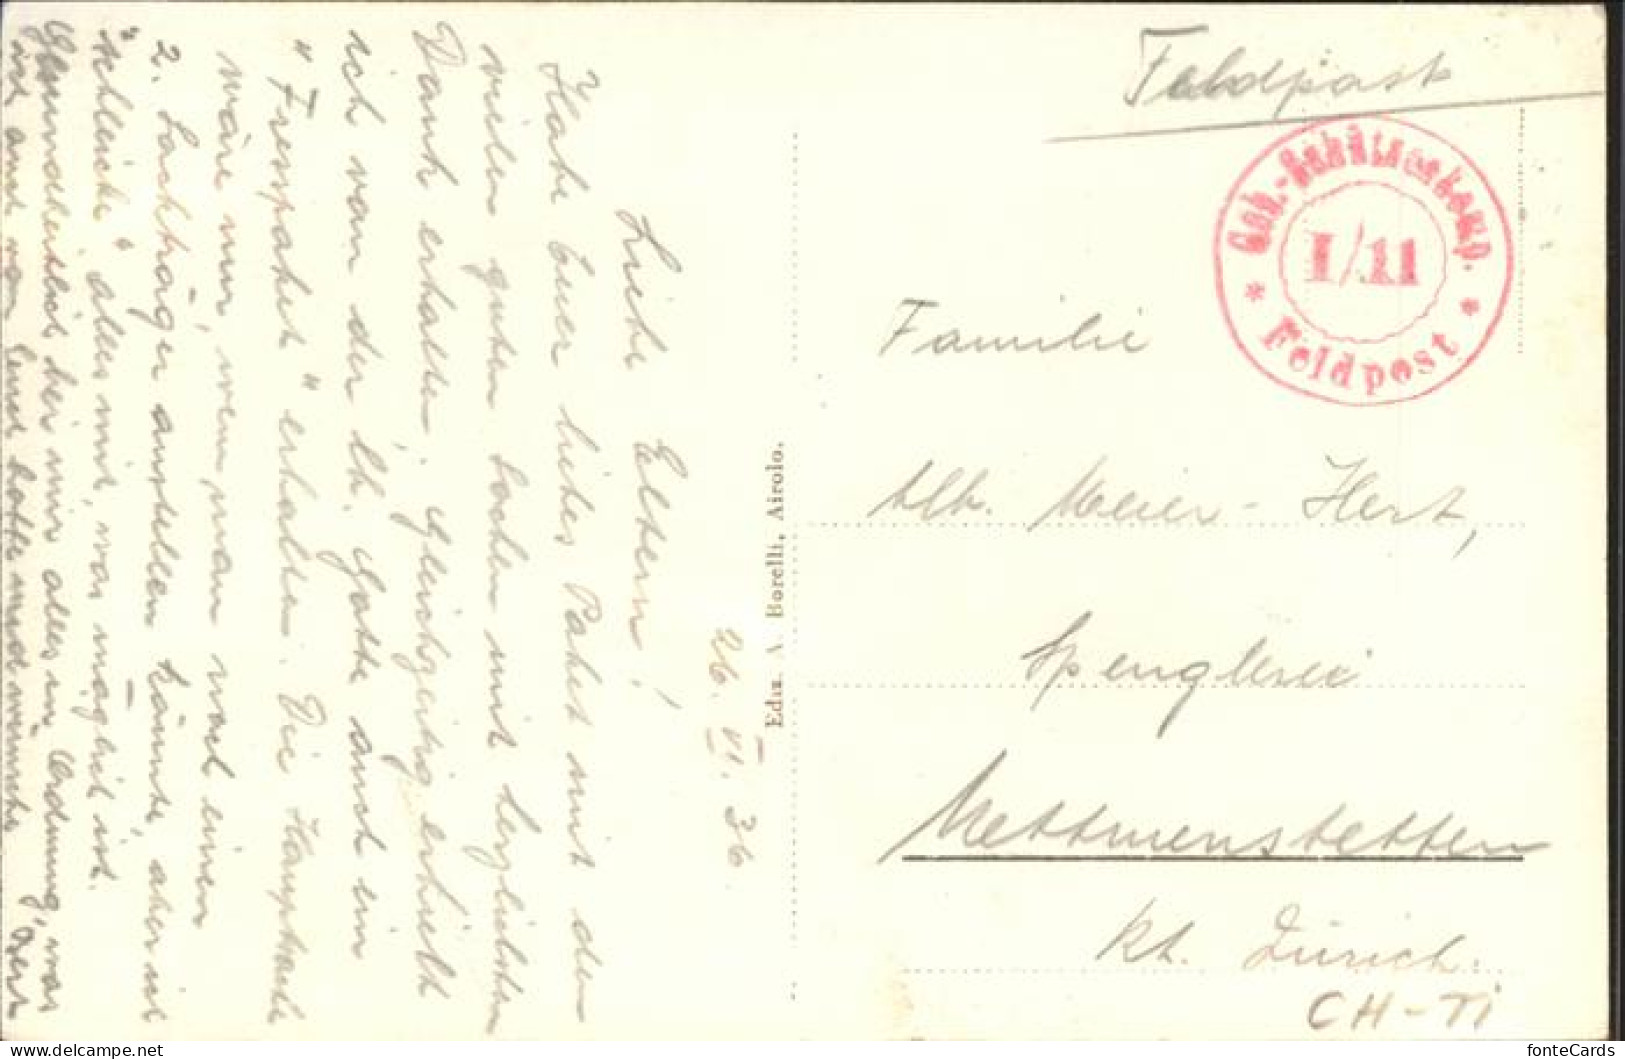 Feldpost
Geb.-Schützenkomp.
I/11
* Feldpost *
Familie
Alb. Meier-Hert,
Spenglerei
Mettmenstetten
Kt. Zürich.
CH-TI
Ediz. A. Borelli, Airolo.
26. VI. 36.
Liebe Eltern!
Habe Euer liebes Paket mit den
vielen guten Sachen mit herzlichstem
Dank erhalten. Gleichzeitig erhielt
ich von der lb. Gotte auch ein
"Fresspaket" erhalten. Die Hauptsache
wäre nur, wenn man noch einen
2. Sackträger anstellen könnte, aber ich
"schleicke" alles mit, was möglich ist.
Gesundheitlich bei mir alles in Ordnung, was
ich auch von Euch hoffe und wünsche.
fonteCards